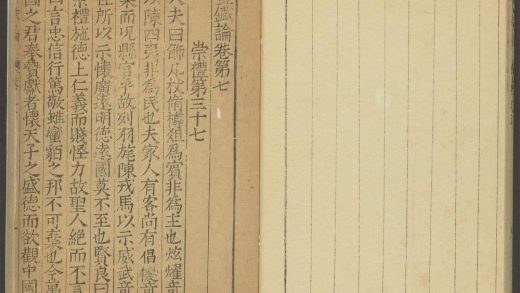 鐵論卷第七
崇禮第三十七
大夫曰飾几杖脩樽俎為賓非為主也炫耀奇
以陳四夷非為民也夫家人有客尚有倡優奇
樂而況縣官乎故列羽旄陳戎馬以示威武奇
所以示懷廣遠明德遠國莫不至也賢良曰
崇禮施德上仁義而賤怪力故聖人絕而不言
曰言忠信行篤敬雖蠻貊之邦不可棄也今萬
國之君奉贄獻者懷天子之盛德而欲觀中國